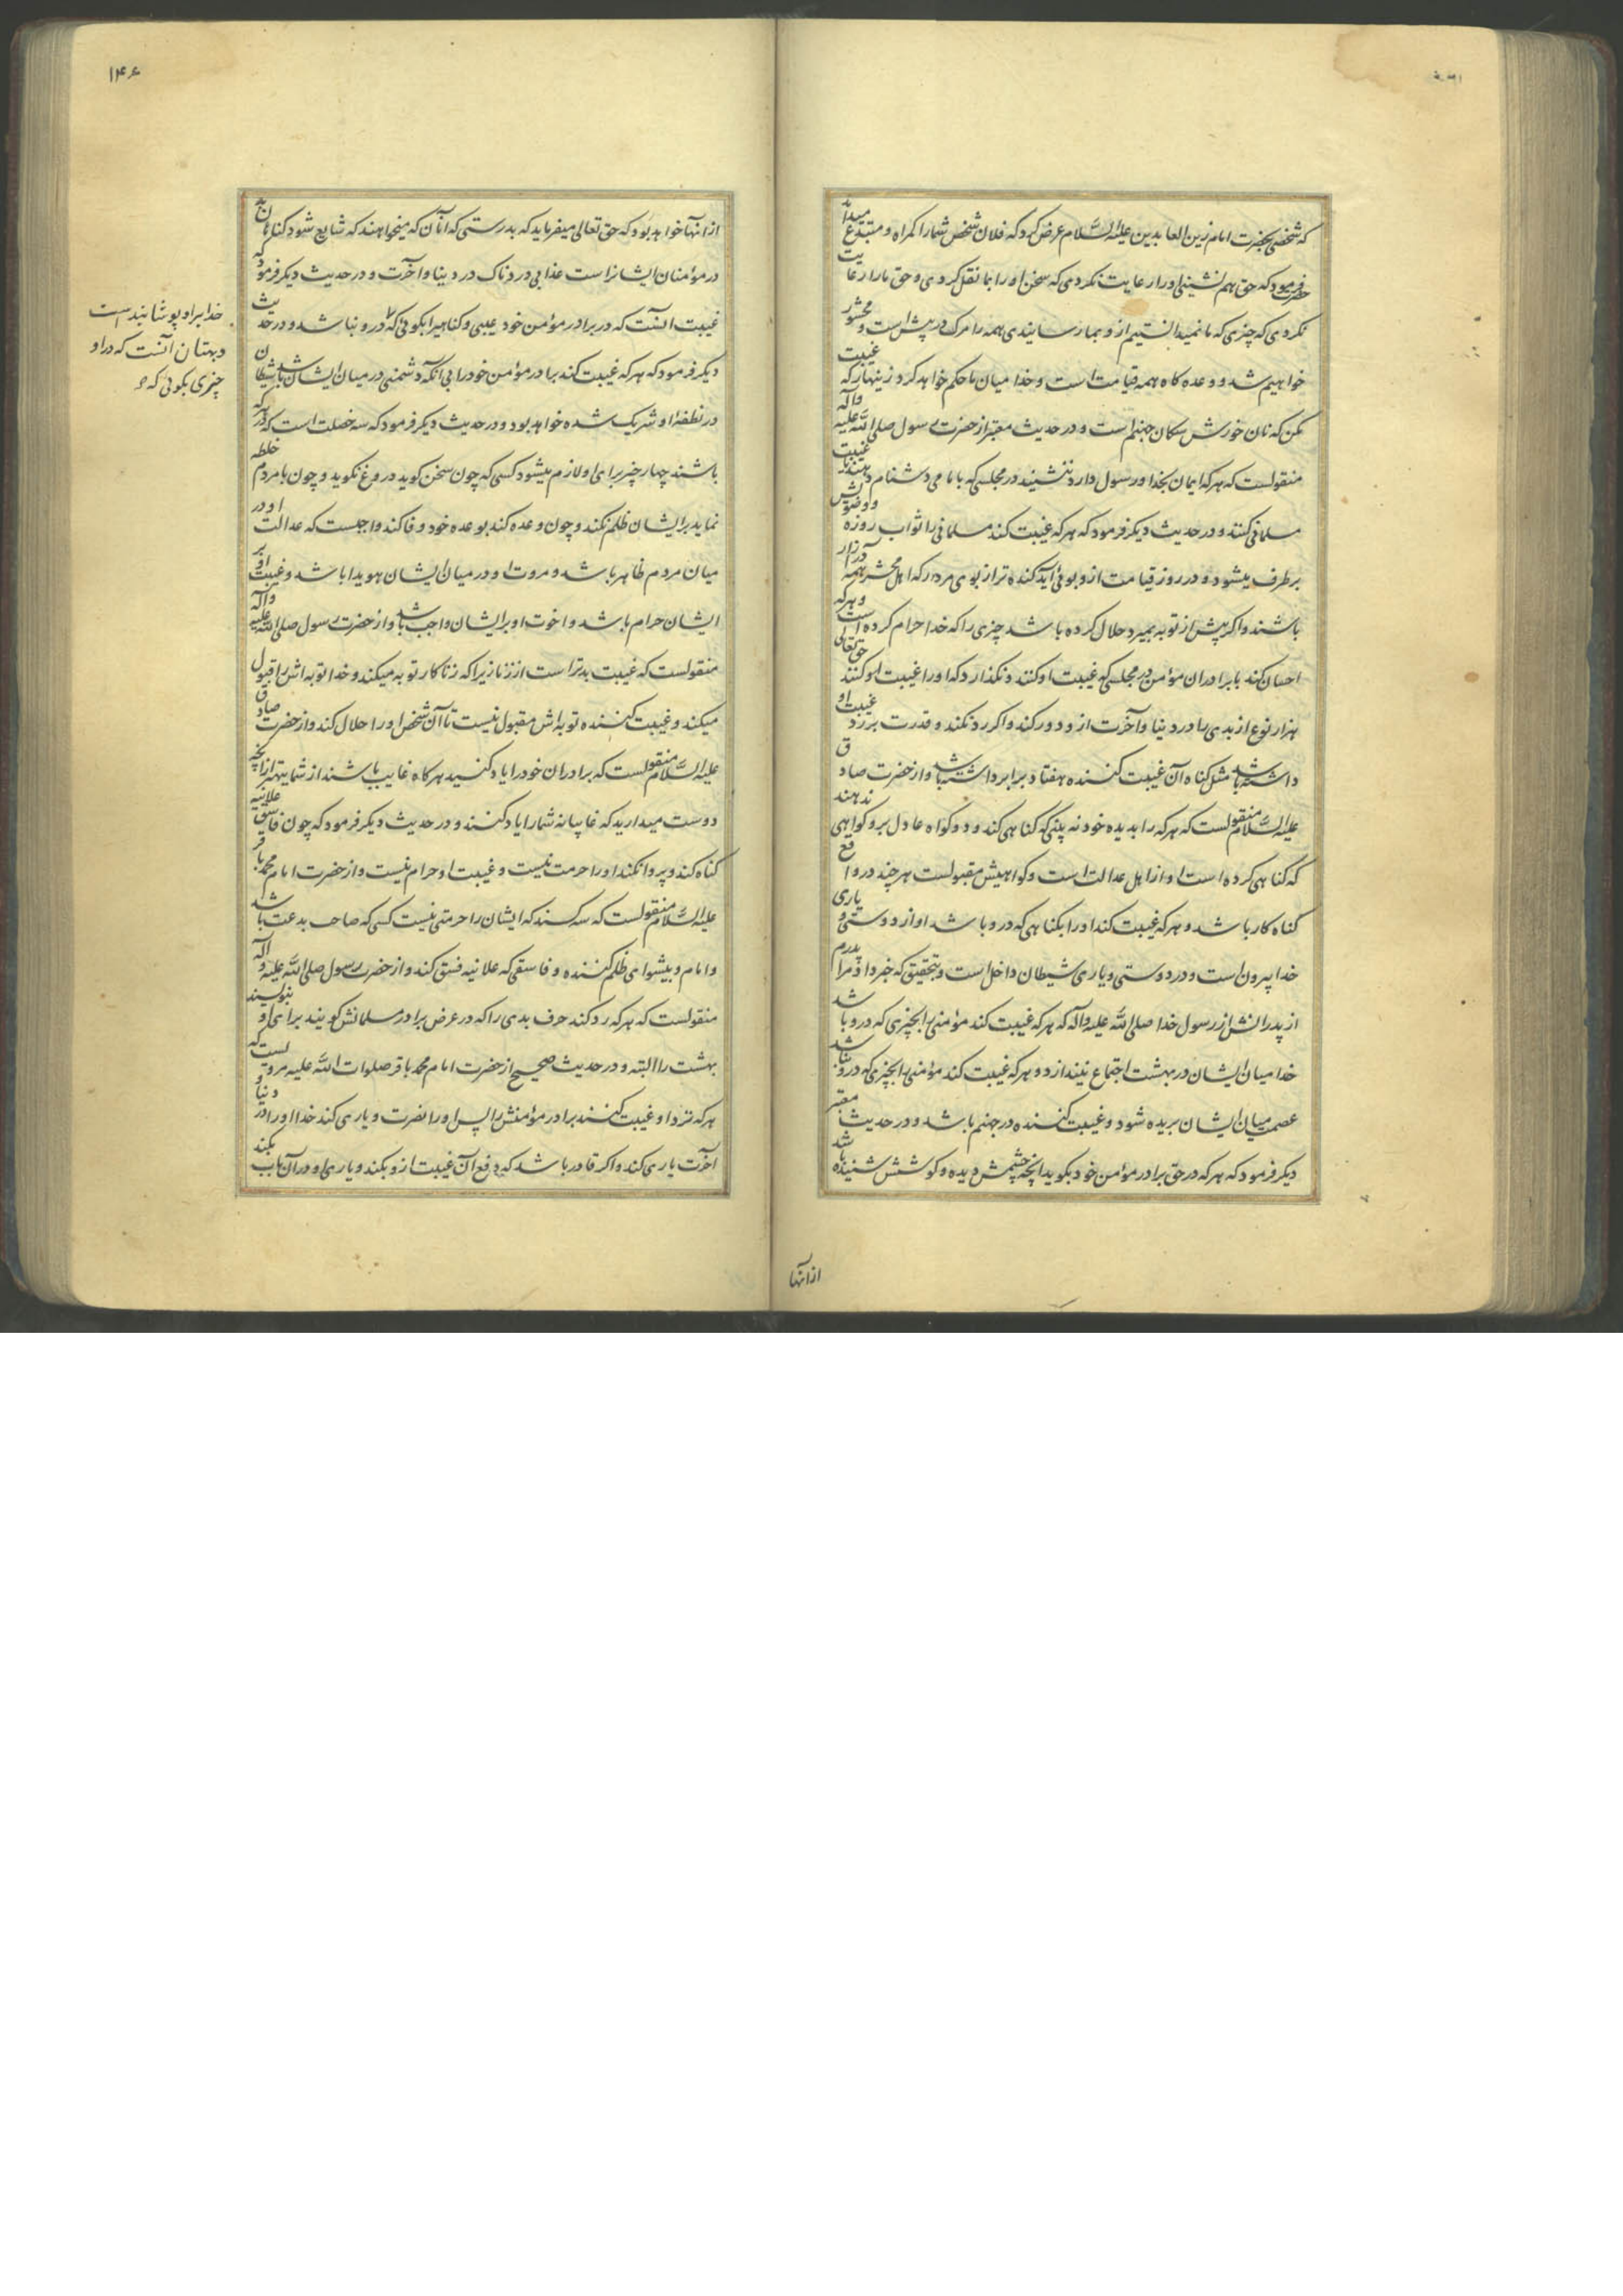 که شخصی بحضرت امام زین العابدین علیه السلام عرض کرد که فلان شخص شما را گمراه و مبتدع میداند
حضرت فرمود که حق هم نشینی او را رعایت نکردی که سخن او را بما نقل کردی و حق ما را رعایت
نکردی که چیزی که ما نمیدانستیم از و بما رسانیدی همه را مرک در پیش است و محشور
خواهیم شد و وعده کاه همه قیامت است و خدا میان ما حکم خواهد کرد زینهار که غیبت
مکن که نان خورش سکان جهنم است و در حدیث معتبر از حضرت رسول صلی الله علیه وآله
منقولست که هر که ایمان بخدا و رسول دارد ننشیند در مجلسی که امامی دشنام دهند یا غیبت
مسلمانی کنند و در حدیث دیکر فرمود که هر که غیبت کند مسلمانی را ثواب روزه و وضوش
برطرف میشود و در روز قیامت از و بوئی آید کنده تر از بوی مردار که اهل محشر همه در آزار
باشند و اکر پیش از توبه بمیرد حلال کرده باشد چیزی را که خدا حرام کرده است و هر که
احسان کند با برادران مؤمن در مجلسی که غیبت او کنند و نکذارد که او را غیبت او کنند حق تعالی
هزار نوع از بدی را در دنیا و آخرت از و دور کند و اکر رد نکند و قدرت بر رد غیبت او
داشته باشد مثل کناه آن غیبت کننده هفتاد برابر داشته باشد و از حضرت صادق
علیه السلام منقولست که هر که را بدیده خود نه بینی که کناهی کند و دو کواه عادل برو کواهی ندهند
که کناهی کرده است او از اهل عدالت است و کواهیش مقبولست هر چند در واقع
کناه کار باشد و هر که غیبت کند او را بکناهی که درو باشد او از دوستی و یاری
خدا بیرون است و در دوستی و یاری شیطان داخل است و بتحقیق که خبر داد مرا پدرم
از پدرانش از رسول خدا صلی الله علیه وآله که هر که غیبت کند مؤمنی را بچیزی که درو باشد
خدا میان ایشان در بهشت اجتماع نیندازد و هر که غیبت کند مؤمنی را بچیزی که درو نباشد
عصمت میان ایشان بریده شود و غیبت کننده در جهنم باشد و در حدیث معتبر
دیکر فرمود که هر که در حق برادر مؤمن خود بکوید انچه چشمش دیده و کوشش شنیده باشد
از انها
۱۴۶
از انها خواهد بود که حق تعالی میفرماید که بدرستی که آنان که میخواهند که شایع شود کناهان بد
در مؤمنان ایشانراست عذابی دردناک در دنیا و آخرت و در حدیث دیکر فرمود که
غیبت آنست که در برادر مؤمن خود عیبی و کناهیرا بکوئی که درو نباشد و در حدیث
دیکر فرمود که هر که غیبت کند برادر مؤمن خود را بی آنکه دشمنی در میان ایشان باشد شیطان
در نطفهٔ او شریک شده خواهد بود و در حدیث دیکر فرمود که سه خصلت است که در هر که
باشند چهار چیز برای او لازم میشود کسی که چون سخن کوید دروغ نکوید و چون با مردم خلطه
نماید بر ایشان ظلم نکند و چون وعده کند بوعده خود وفا کند واجبست که عدالت او در
میان مردم ظاهر باشد و مروت او در میان ایشان هویدا باشد و غیبت او بر
ایشان حرام باشد و اخوت او بر ایشان واجب باشد و از حضرت رسول صلی الله علیه وآله
منقولست که غیبت بدتر است از زنا زیرا که زنا کار توبه میکند و خدا توبه اش را قبول
میکند و غیبت کننده توبه اش مقبول نیست تا آن شخص او را حلال کند و از حضرت صادق
علیه السلام منقولست که برادران خود را یاد کنید هر کاه غایب باشند از شما بهتر از انچه
دوست میدارید که غایبانه شما را یاد کنند و در حدیث دیکر فرمود که چون فاسق علانیه
کناه کند و پروا نکند او را حرمت نیست و غیبت او حرام نیست و از حضرت امام محمد باقر
علیه السلام منقولست که سه کسند که ایشان را حرمتی نیست کسی که صاحب بدعت باشد
و امام و پیشوای ظلم کننده و فاسقی که علانیه فسق کند و از حضرت رسول صلی الله علیه و اله
منقولست که هر که رد کند حرف بدی را که در عرض برادر مسلمانش کویند برای او بنویسند
بهشت را البته و در حدیث صحیح از حضرت امام محمد باقر صلوات الله علیه مرویست که
هر که نزد او غیبت کنند برادر مؤمنش را پس او را نصرت و یاری کند خدا او را در دنیا و
آخرت یاری کند و اکر قادر باشد که دفع آن غیبت ازو بکند و یاری او در آن باب بکند
خدا بر او پوشانیده است
و بهتان آنست که در او
چیزی بکوئی که